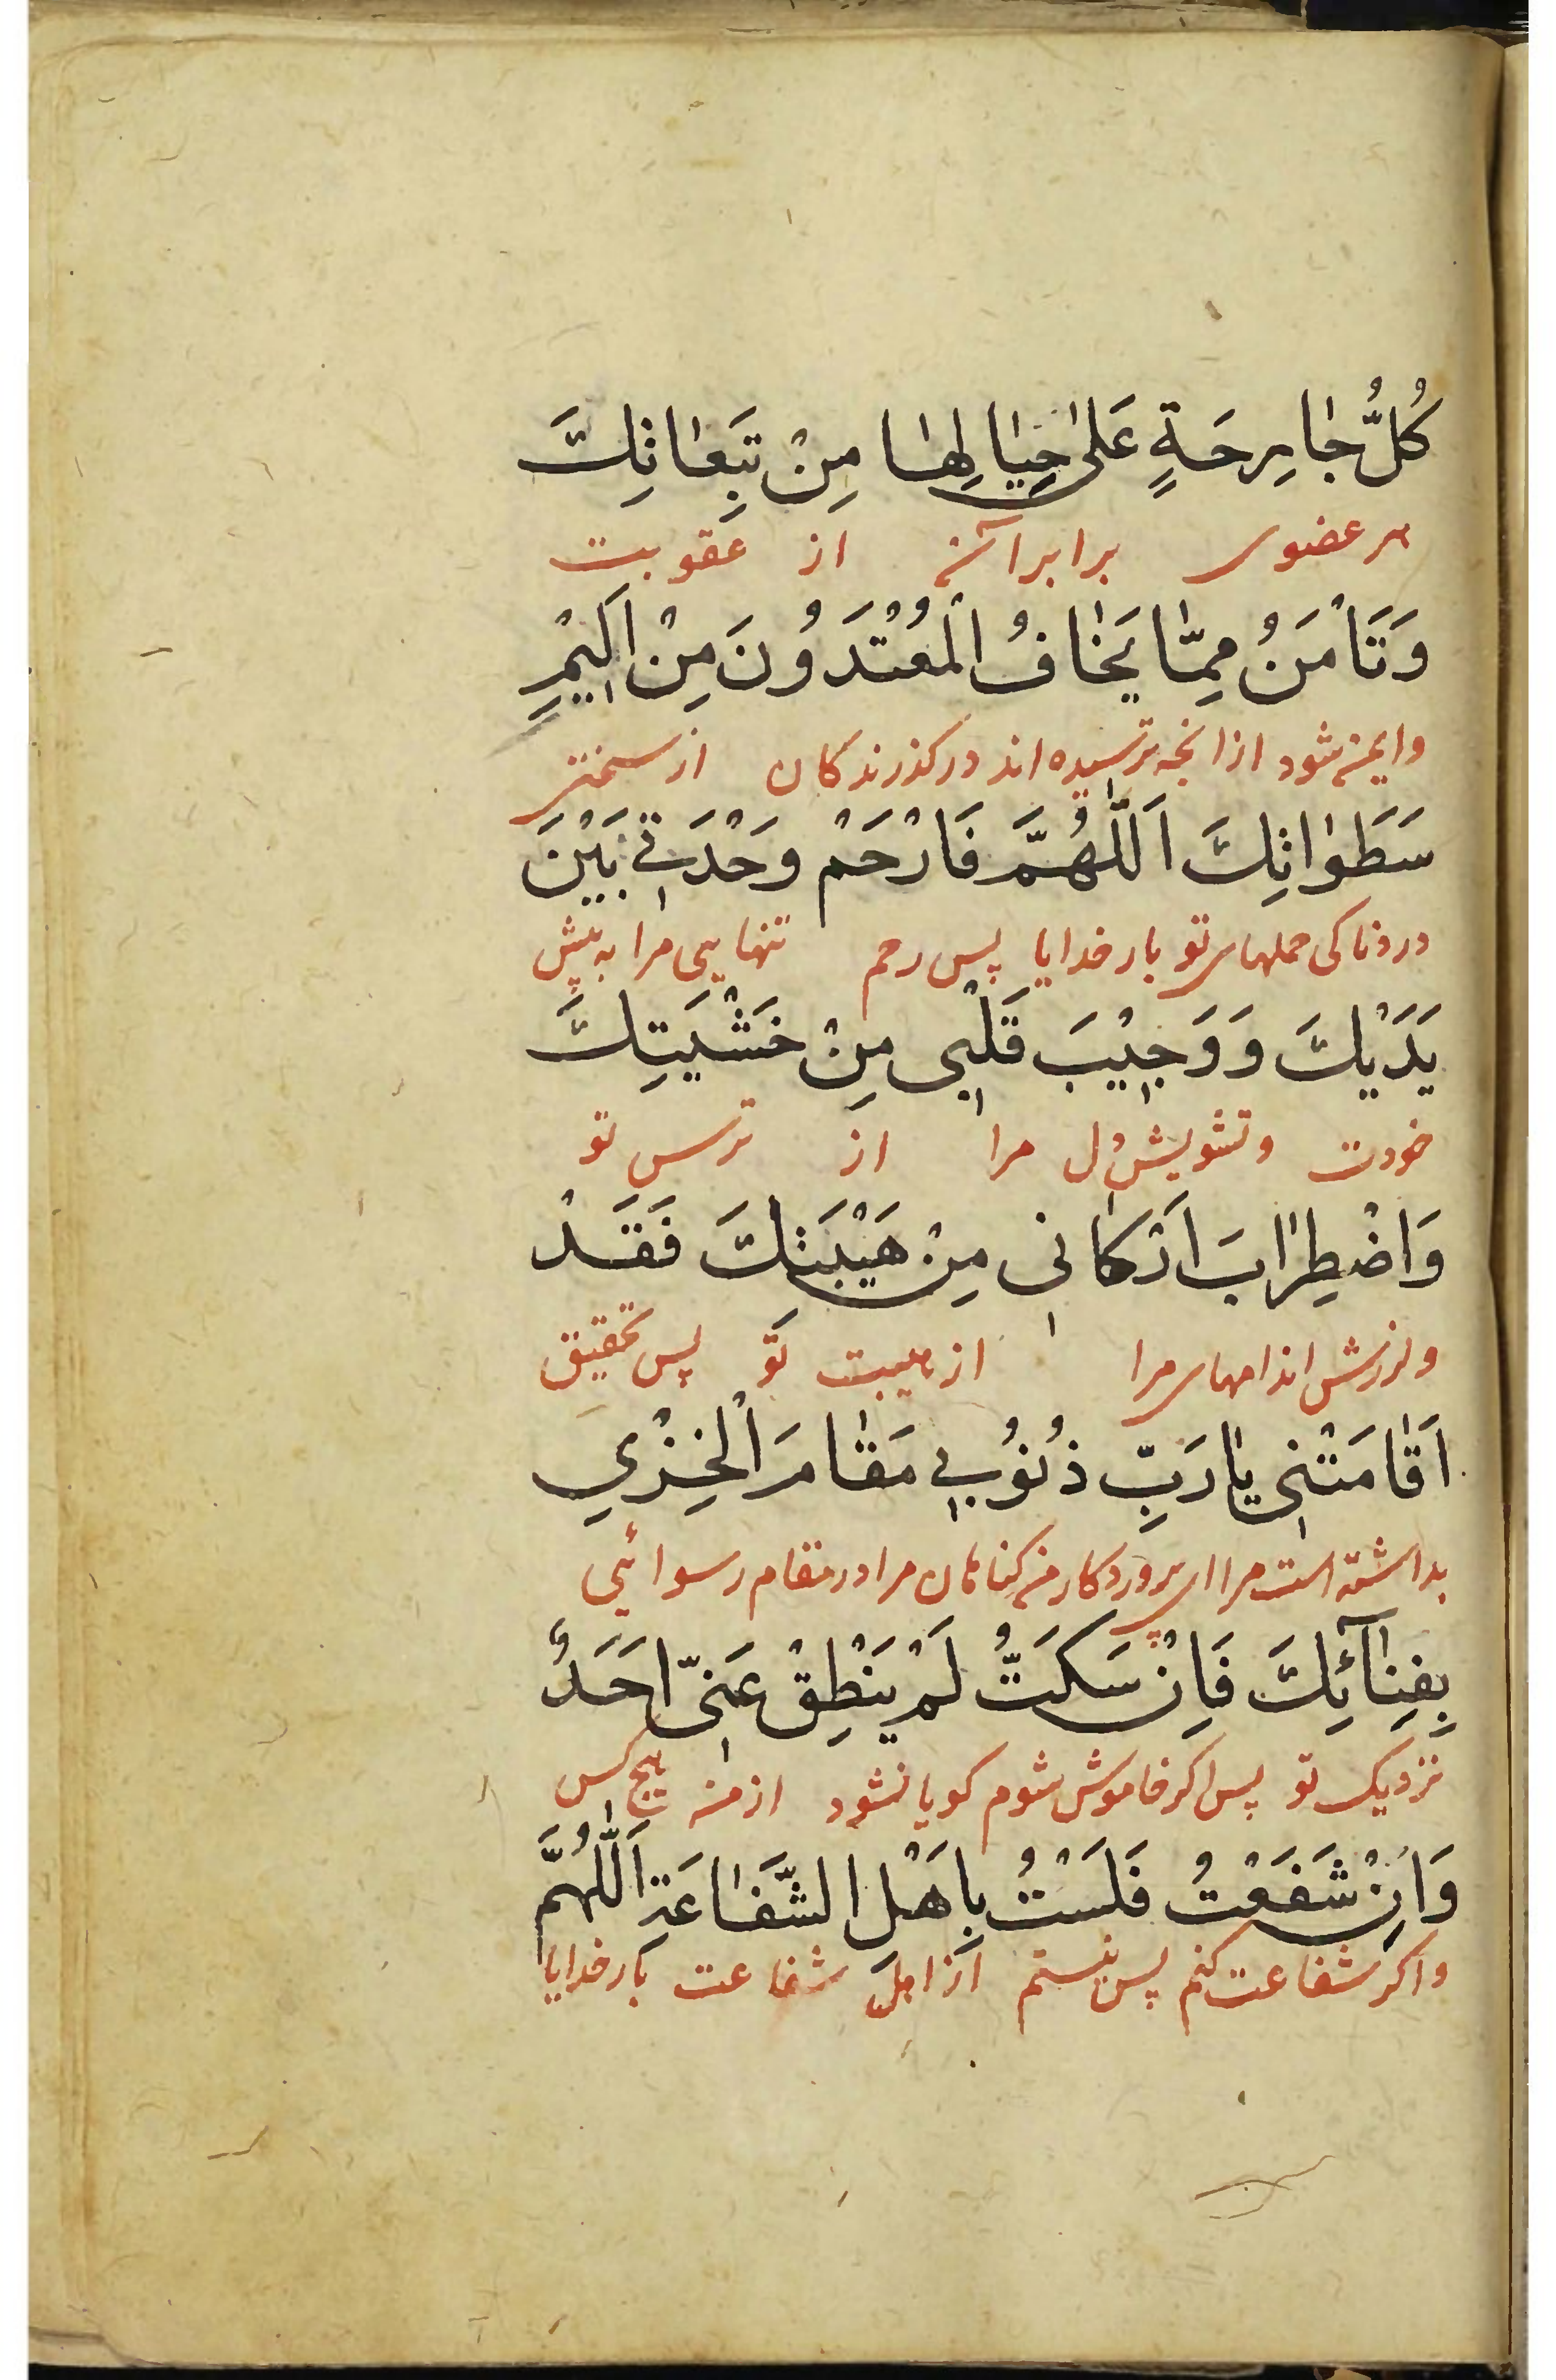 كُلُّ جٰارِحَةٍ عَلىٰ حِيٰالِهٰا مِنْ تَبِعٰاتِكَ
هر عضوی برابر آن از عقوبت
وَتَأْمَنُ مِمّٰا يَخٰافُ الْمُعْتَدُوْنَ مِنْ اَلِيْمِ
وایمن شود ازانچه ترسیده‌اند درگذرندکان از سختی
سَطَوٰاتِكَ اَللّٰهُمَّ فَارْحَمْ وَحْدَتِي بَيْنَ
دردناکی حملهای تو بارخدایا پس رحم تنهایی مرا به پیش
يَدَيْكَ وَوَجِيْبَ قَلْبِي مِنْ خَشْيَتِكَ
خودت وتشویش دل مرا از ترس تو
وَاضْطِرٰابَ اَرْكٰانِي مِنْ هَيْبَتِكَ فَقَدْ
ولرزش اندامهای مرا از هیبت تو پس تحقیق
اَقٰامَتْنِي يٰا رَبِّ ذُنُوْبِي مَقٰامَ الْخِزْيِ
بداشته است مرا ای پروردکار من کناهان مرا در مقام رسوائی
بِفِنٰآئِكَ فَاِنْ سَكَتُّ لَمْ يَنْطِقْ عَنِّي اَحَدٌ
نزدیک تو پس اکر خاموش شوم کویا نشود از من هیچ کس
وَاِنْ شَفَعْتُ فَلَسْتُ بِاَهْلِ الشَّفٰاعَةِ اَللّٰهُمَّ
واکر شفاعت کنم پس نیستم از اهل شفاعت بارخدایا